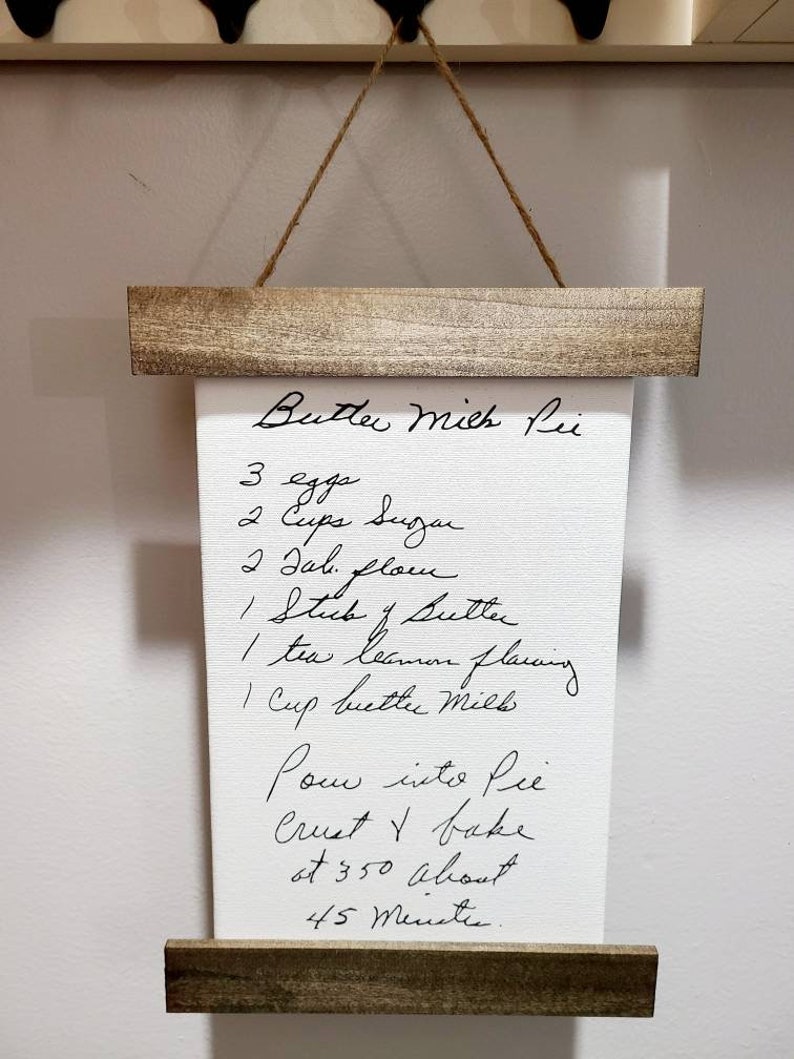 Butter Milk Pie
3 eggs
2 Cups Sugar
2 Tab. flour
1 Stick of Butter
1 tea leamon flavoring
1 Cup butter Milk
Pour into Pie
Crust & bake
at 350 about
45 Minutes.